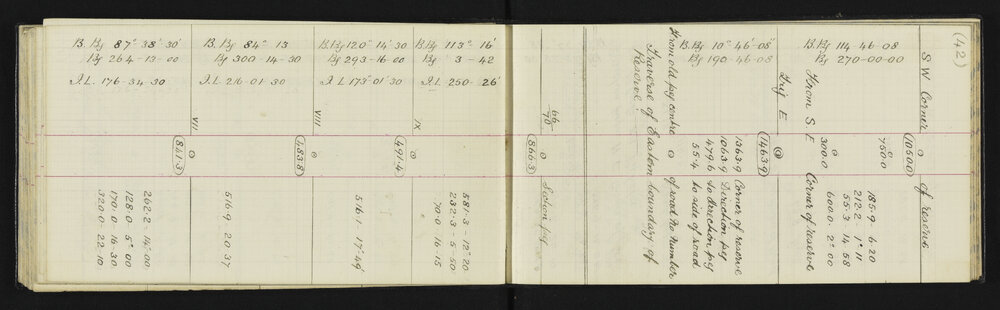 (42)
S W Corner
of reserve
1050.0
750.0
300.0
185.9 6.20
212.2 1° 11
55.3 14.58
600.0 2° 00
B. Bg 114-46-08
Bg 270-00-00
From S E
Corner of reserve
Trig E
1463.9
B. Bg 10° 46'-08"
Bg 190-46-08
1363.9 Corner of reserve
1063.9 Direction peg
479.6 to direction peg
55.4 to side of road
From old peg centre
of road no number
Traverse of Eastern boundary of
Reserve
66/70
866.3
B. Bg 113° 16'
Bg 3-42
I L 250-26'
IX
491.4
581.3-12°20
232.3-5-50
70.0 16-15
B. Bg 120° 14' 30
Bg 293-16-00
I L 173° 01' 30
VIII
483.8
516.1-17-49'
B. Bg 84° 13
Bg 300-14-30
I L 216-01-30
VII
841.3
516.9 20.37
B. Bg 87° 38' 30'
Bg 264-13-00
I L 176-34-30
262.2-14°00
128.0-5°00
170.0-16-30
320.0-22-10